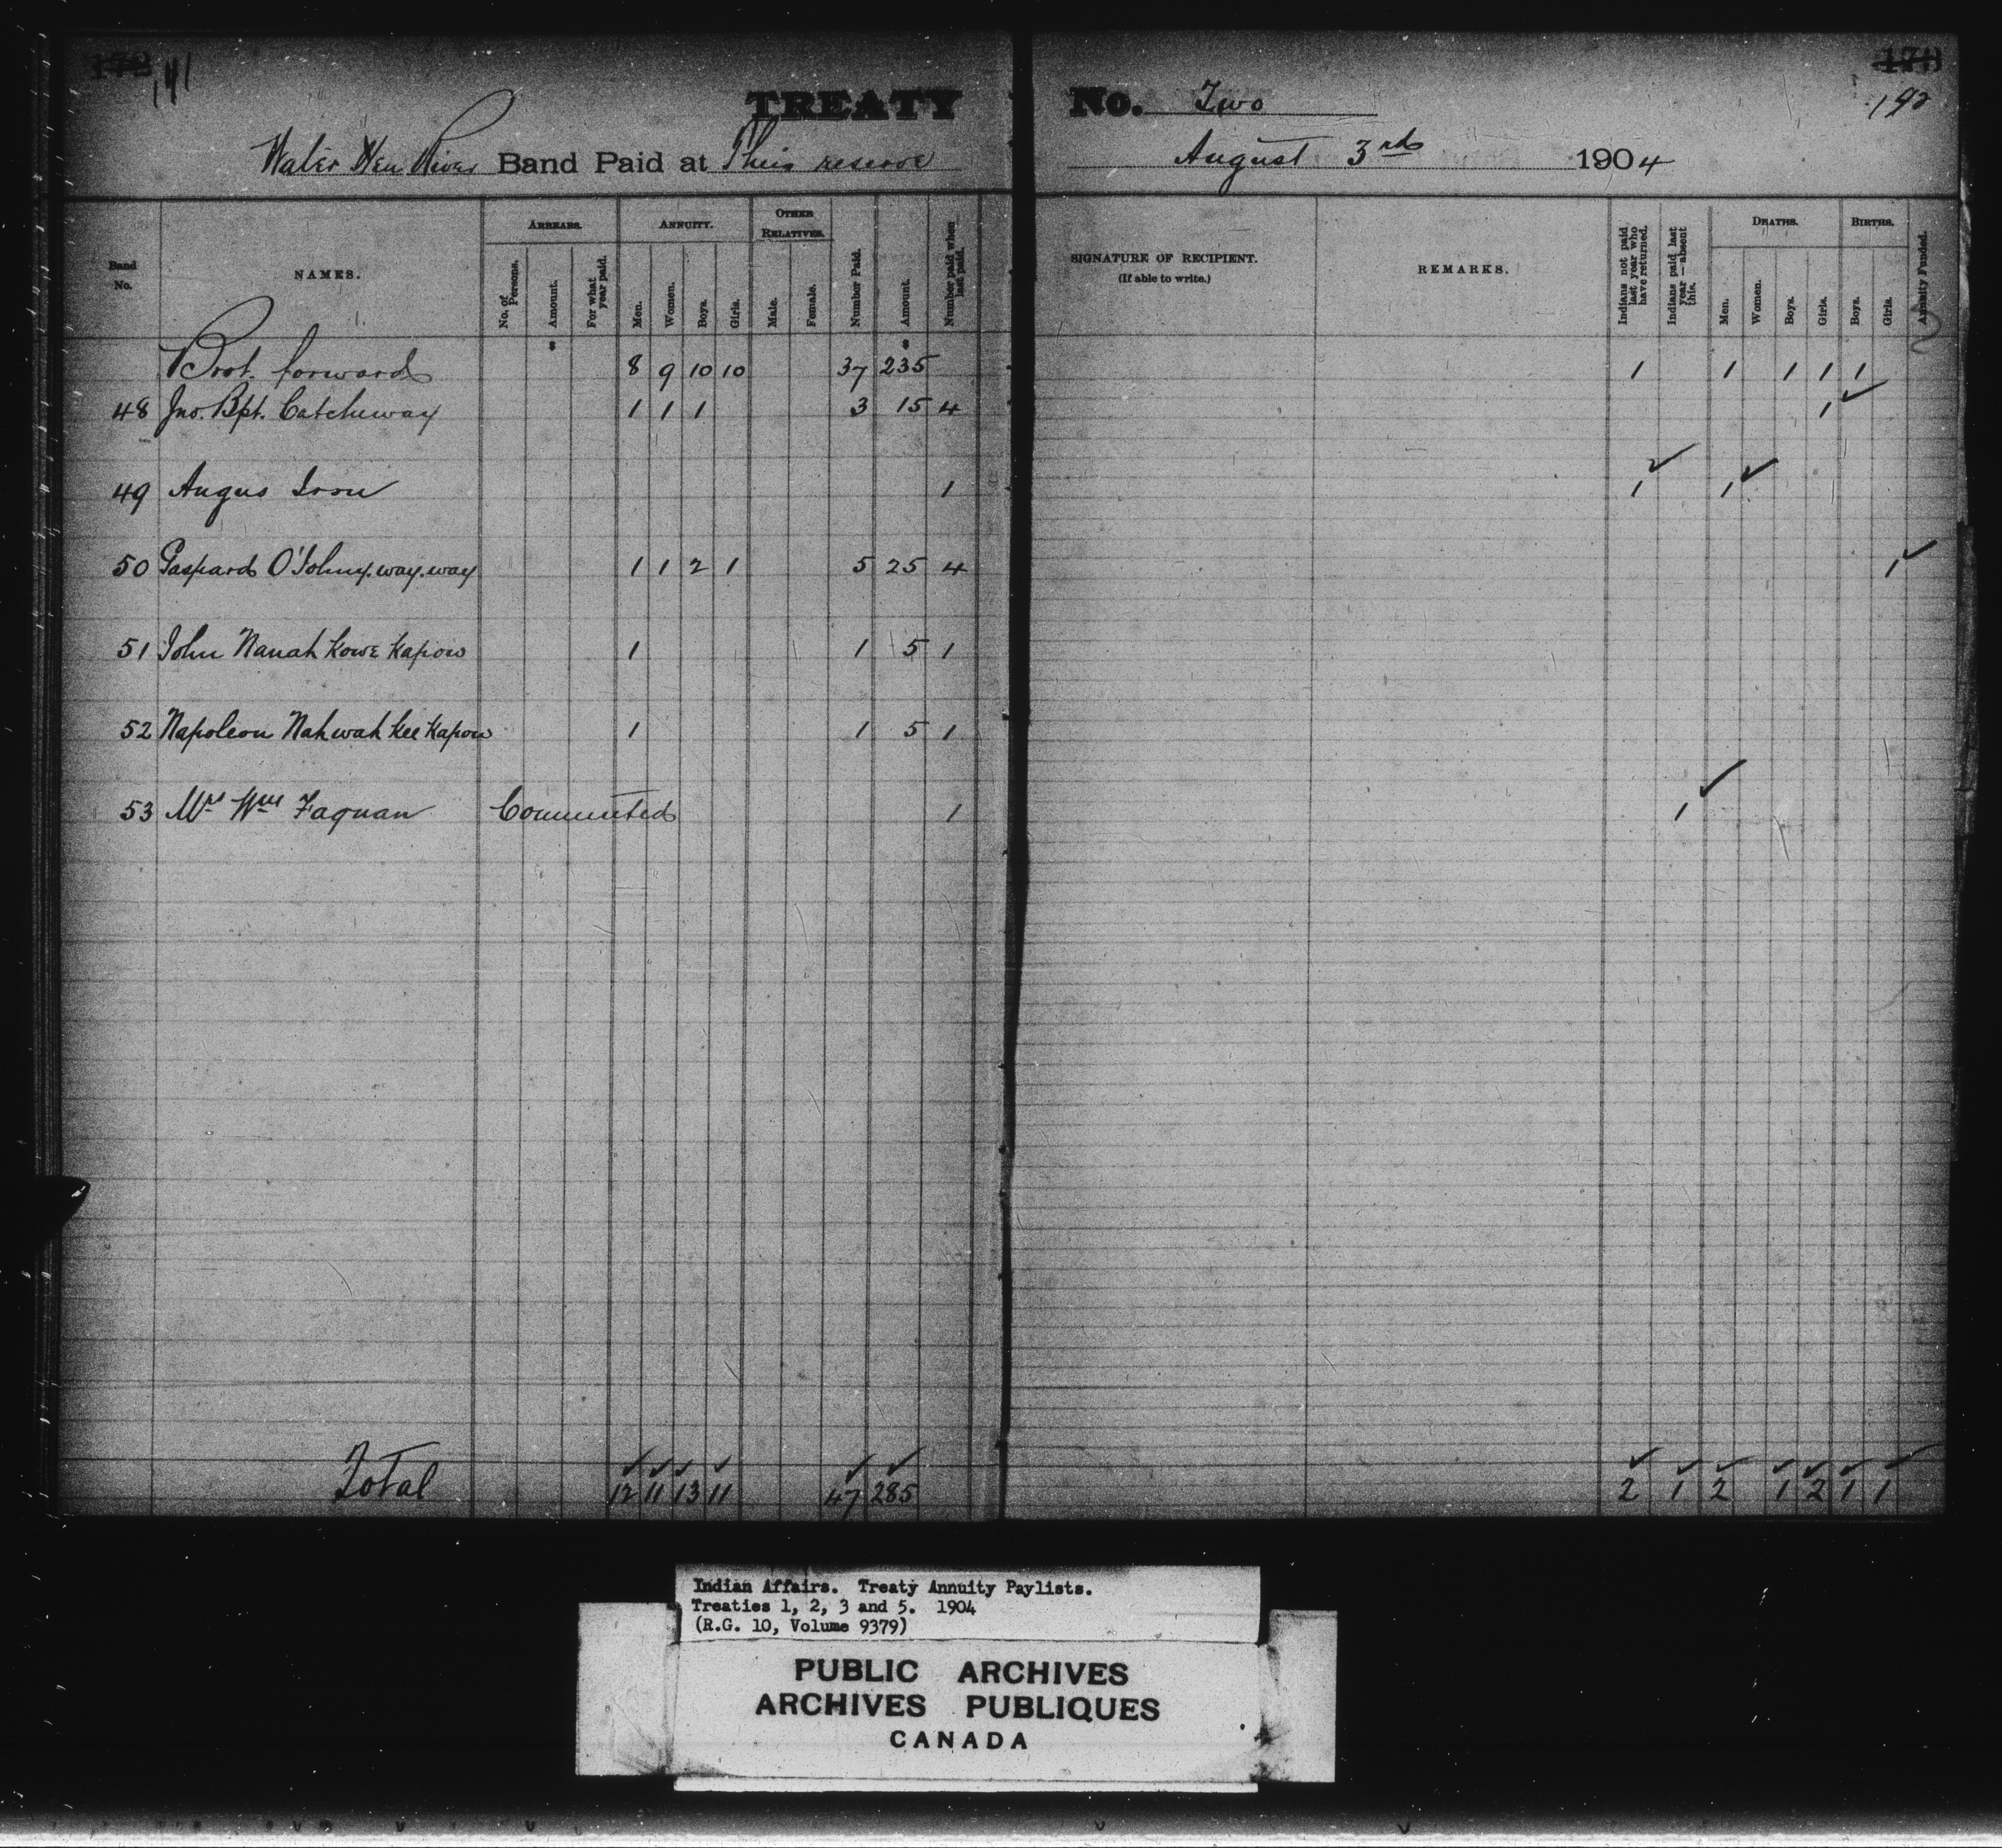 172 141 173 192
TREATY No. Two
Water Hen River Band Paid at Their reserve August 3rd 1904
Band No. NAMES. ARREARS. No. of Persons. Amount. For what year paid. ANNUITY. Men. Women. Boys. Girls. OTHER RELATIVES. Male. Female. Number Paid. Amount. Number paid when last paid. SIGNATURE OF RECIPIENT. (If able to write.) REMARKS. Indians not paid last year who have returned. Indians paid last year—absent this. DEATHS. Men. Women. Boys. Girls. BIRTHS. Boys. Girls. Annuity Funded.
$ $
Brot. forward 8 9 10 10 37 235 1 1 1 1 1
48 Jno. Bpt. Catcheway 1 1 1 3 15 4 1 ✓
49 Angus Iron 1 1 ✓ 1 ✓
50 Gaspard O'Johny.way.way 1 1 2 1 5 25 4 1 ✓
51 John Nanah Kowe Kapow 1 1 5 1
52 Napoleon Nahwah Kee Kapow 1 1 5 1
53 Mrs Wm Faquan Commuted 1 1 ✓
✓ ✓ ✓ ✓ ✓ ✓ ✓ ✓ ✓ ✓ ✓ ✓ ✓
Total 12 11 13 11 47 285 2 1 2 1 2 1 1
Indian Affairs. Treaty Annuity Paylists.
Treaties 1, 2, 3 and 5. 1904
(R.G. 10, Volume 9379)
PUBLIC ARCHIVES
ARCHIVES PUBLIQUES
CANADA